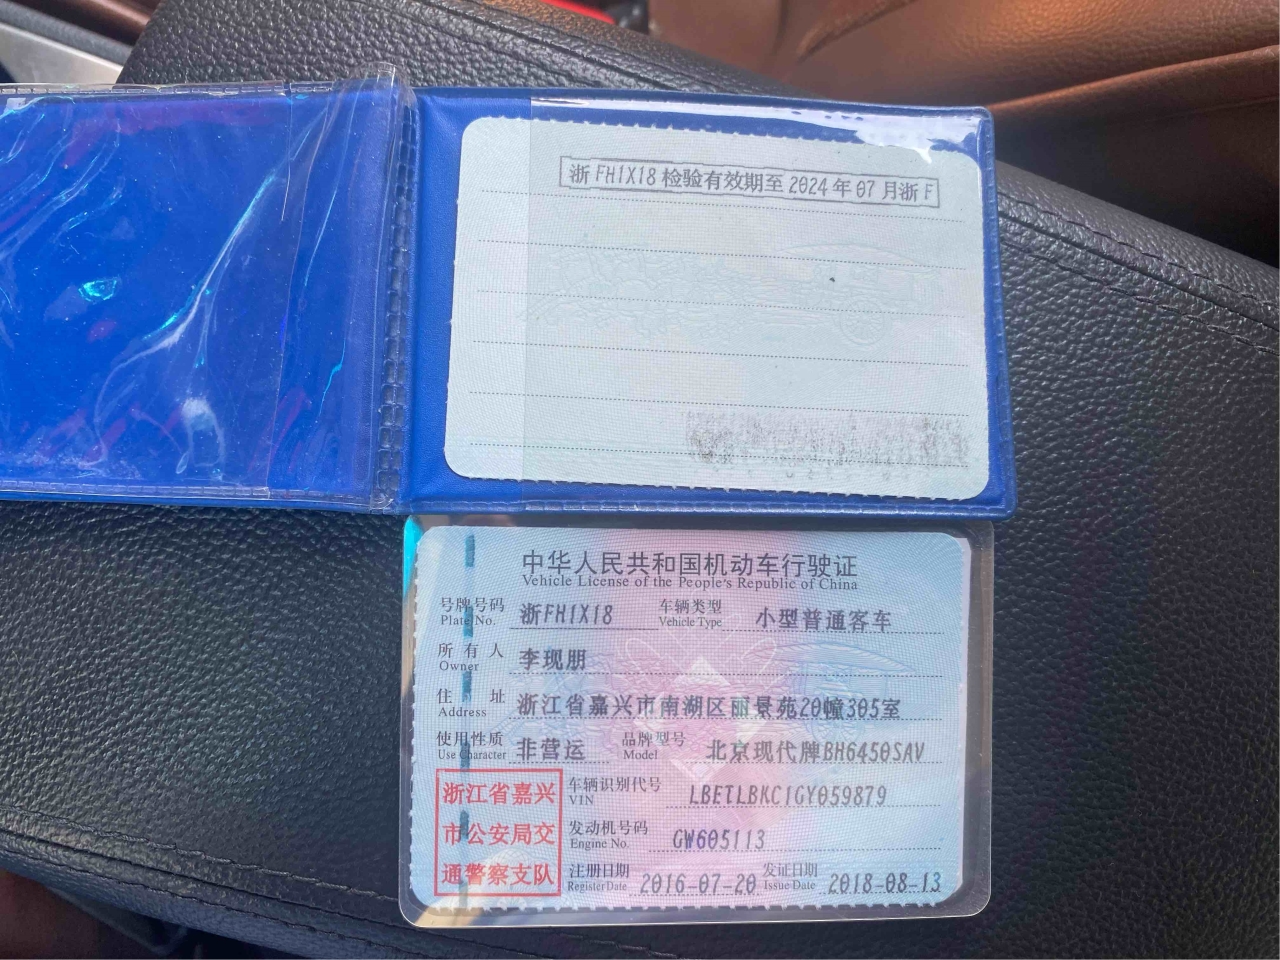 浙FH1X18检验有效期至2024年07月浙F
中华人民共和国机动车行驶证
Vehicle License of the People's Republic of China
号牌号码 浙FH1X18 车辆类型 小型普通客车
Plate No. Vehicle Type
所有人 李现朋
Owner
住址 浙江省嘉兴市南湖区丽景苑20幢305室
Address
使用性质 非营运 品牌型号 北京现代牌BH6450SAV
Use Character Model
浙江省嘉兴
市公安局交
通警察支队
车辆识别代号 LBETLBKC1GY059879
VIN
发动机号码 GW605113
Engine No.
注册日期 2016-07-20 发证日期 2018-08-13
Register Date Issue Date